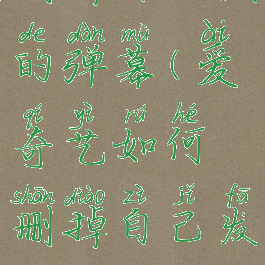 de dàn mù ( ài
的弹幕(爱
qí yì rú hé
奇艺如何
shān diào zì jǐ fā
删掉自己发